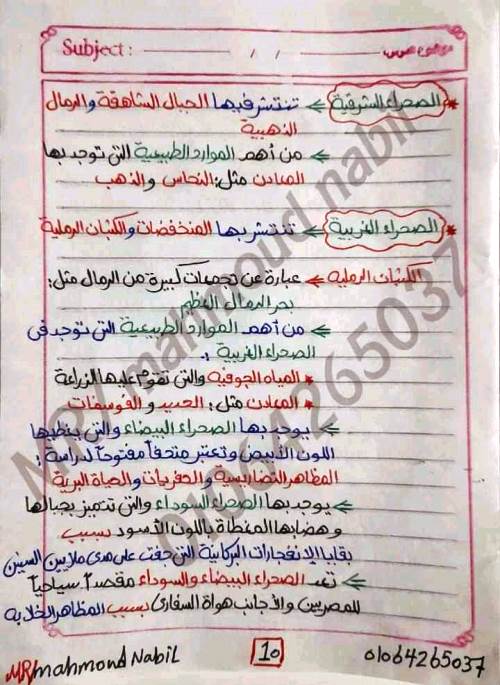 Subject: / / موضوع الدرس
* الصحراء الشرقية ⇐ تنتشر فيها الجبال الشاهقة والرمال
الذهبية
⇐ من أهم الموارد الطبيعية التى توجد بها
المعادن مثل: النحاس والذهب
* الصحراء الغربية ⇐ تنتشر بها المنخفضات والكثبان الرملية
الكثبان الرملية ⇐ عبارة عن تجمعات كبيرة من الرمال مثل:
بحر الرمال العظيم
⇐ من أهم الموارد الطبيعية التى توجد فى
الصحراء الغربية :
* المياه الجوفية والتى تقوم عليها الزراعة
* المعادن مثل: الحديد والفوسفات
⇐ يوجد بها الصحراء البيضاء والتى يغطيها
اللون الأبيض وتعتبر متحفاً مفتوحاً لدراسة:
المظاهر التضاريسية والحفريات والحياة البرية
⇐ يوجد بها الصحراء السوداء والتى تتميز بجبالها
وهضابها المغطاة باللون الأسود بسبب
بقايا الإنفجارات البركانية التى جفت على مدى ملايين السنين
⇐ تعد الصحراء البيضاء والسوداء مقصداً سياحياً
للمصريين والأجانب هواة السفارى بسبب المظاهر الخلابه
MR/mahmoud Nabil 10 01064265037
MR/ mahmoud nabil
01064265037